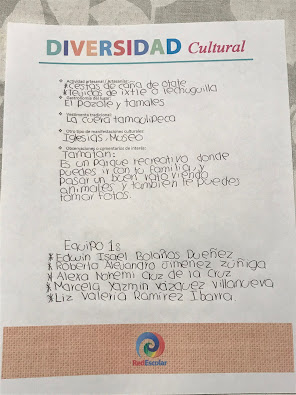 DIVERSIDAD Cultural
❖ Actividad artesanal / Artesanías:
*Cestas de caña de otate
*Tejidos de ixtle o lechuguilla
❖ Gastronomía del lugar:
El pozole y tamales
❖ Vestimenta tradicional:
La cuera tamaulipeca
❖ Otro tipo de manifestaciones culturales:
Iglesias, Museo
❖ Observaciones o comentarios de interés:
Tamatan:
Es un parque recreativo donde
puedes ir con tu familia y
pasar un buen rato viendo
animales y tambien te puedes
tomar fotos.
Equipo 1:
*Edwin Isael Bolaños Dueñez
*Roberto Alejandro Jimenez Zúñiga
*Alexa Nohemi Cruz de la Cruz
*Marcela Yazmin Vázquez Villanueva
*Liz Valeria Ramirez Ibarra.
RedEscolar